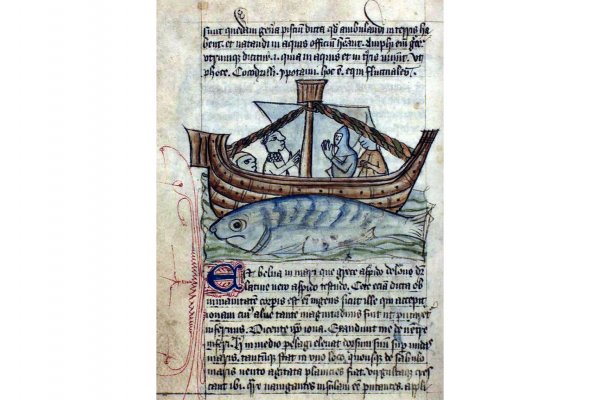 sunt quedam gen̄a pisciū dicta qđ ambulandi in terris ha
bent. et natandi in aquis officiū
dicitur .i. quia in aquis et in t̄ris uiuunt. ut
phoce. Cocodrilli. ypotami. hoc ē. equi fluctuales.
Est belua in mari que grece aspido delone dr̄
latine uero aspido testudo. Cete eciā dicta ob
inmanitatem corpis est eī ingens sicut ille qui excepit
ionam cui' aluus tante magnitudinis fuit ut putaret
infernus. Dicente ipo iona. Exaudiuit me de uentre
inferi. in medio pelagi eleuat dorsum suum sup undas
maris. stat in uno loco. quousque de sabulo
maris uento agitata planicies fiat. cres
cant ibi. nauigantes insulam eē putantes. appli